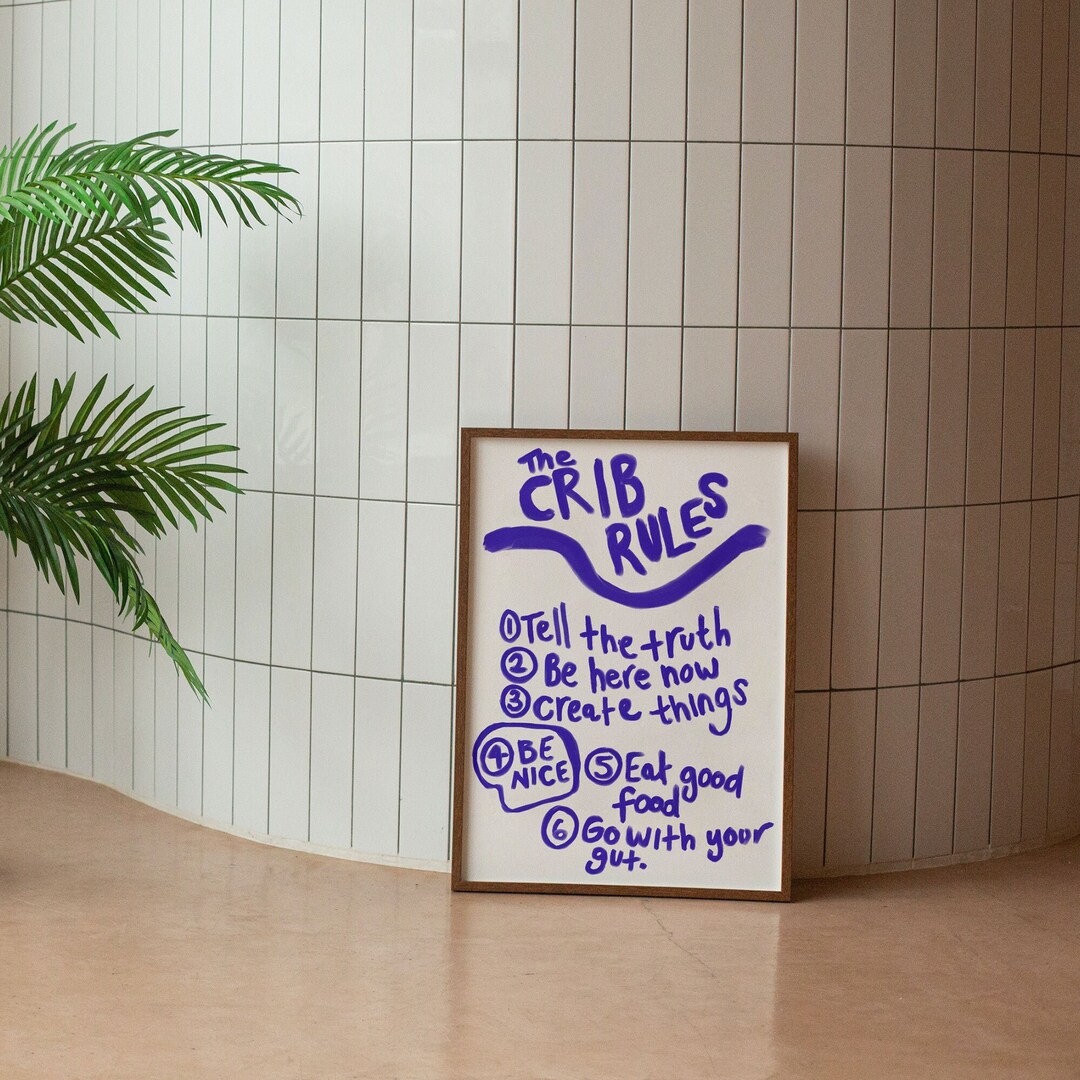 The
CRIB
RULES
① Tell the truth
② Be here now
③ create things
④ BE
NICE
⑤ Eat good
food
⑥ Go with your
gut.